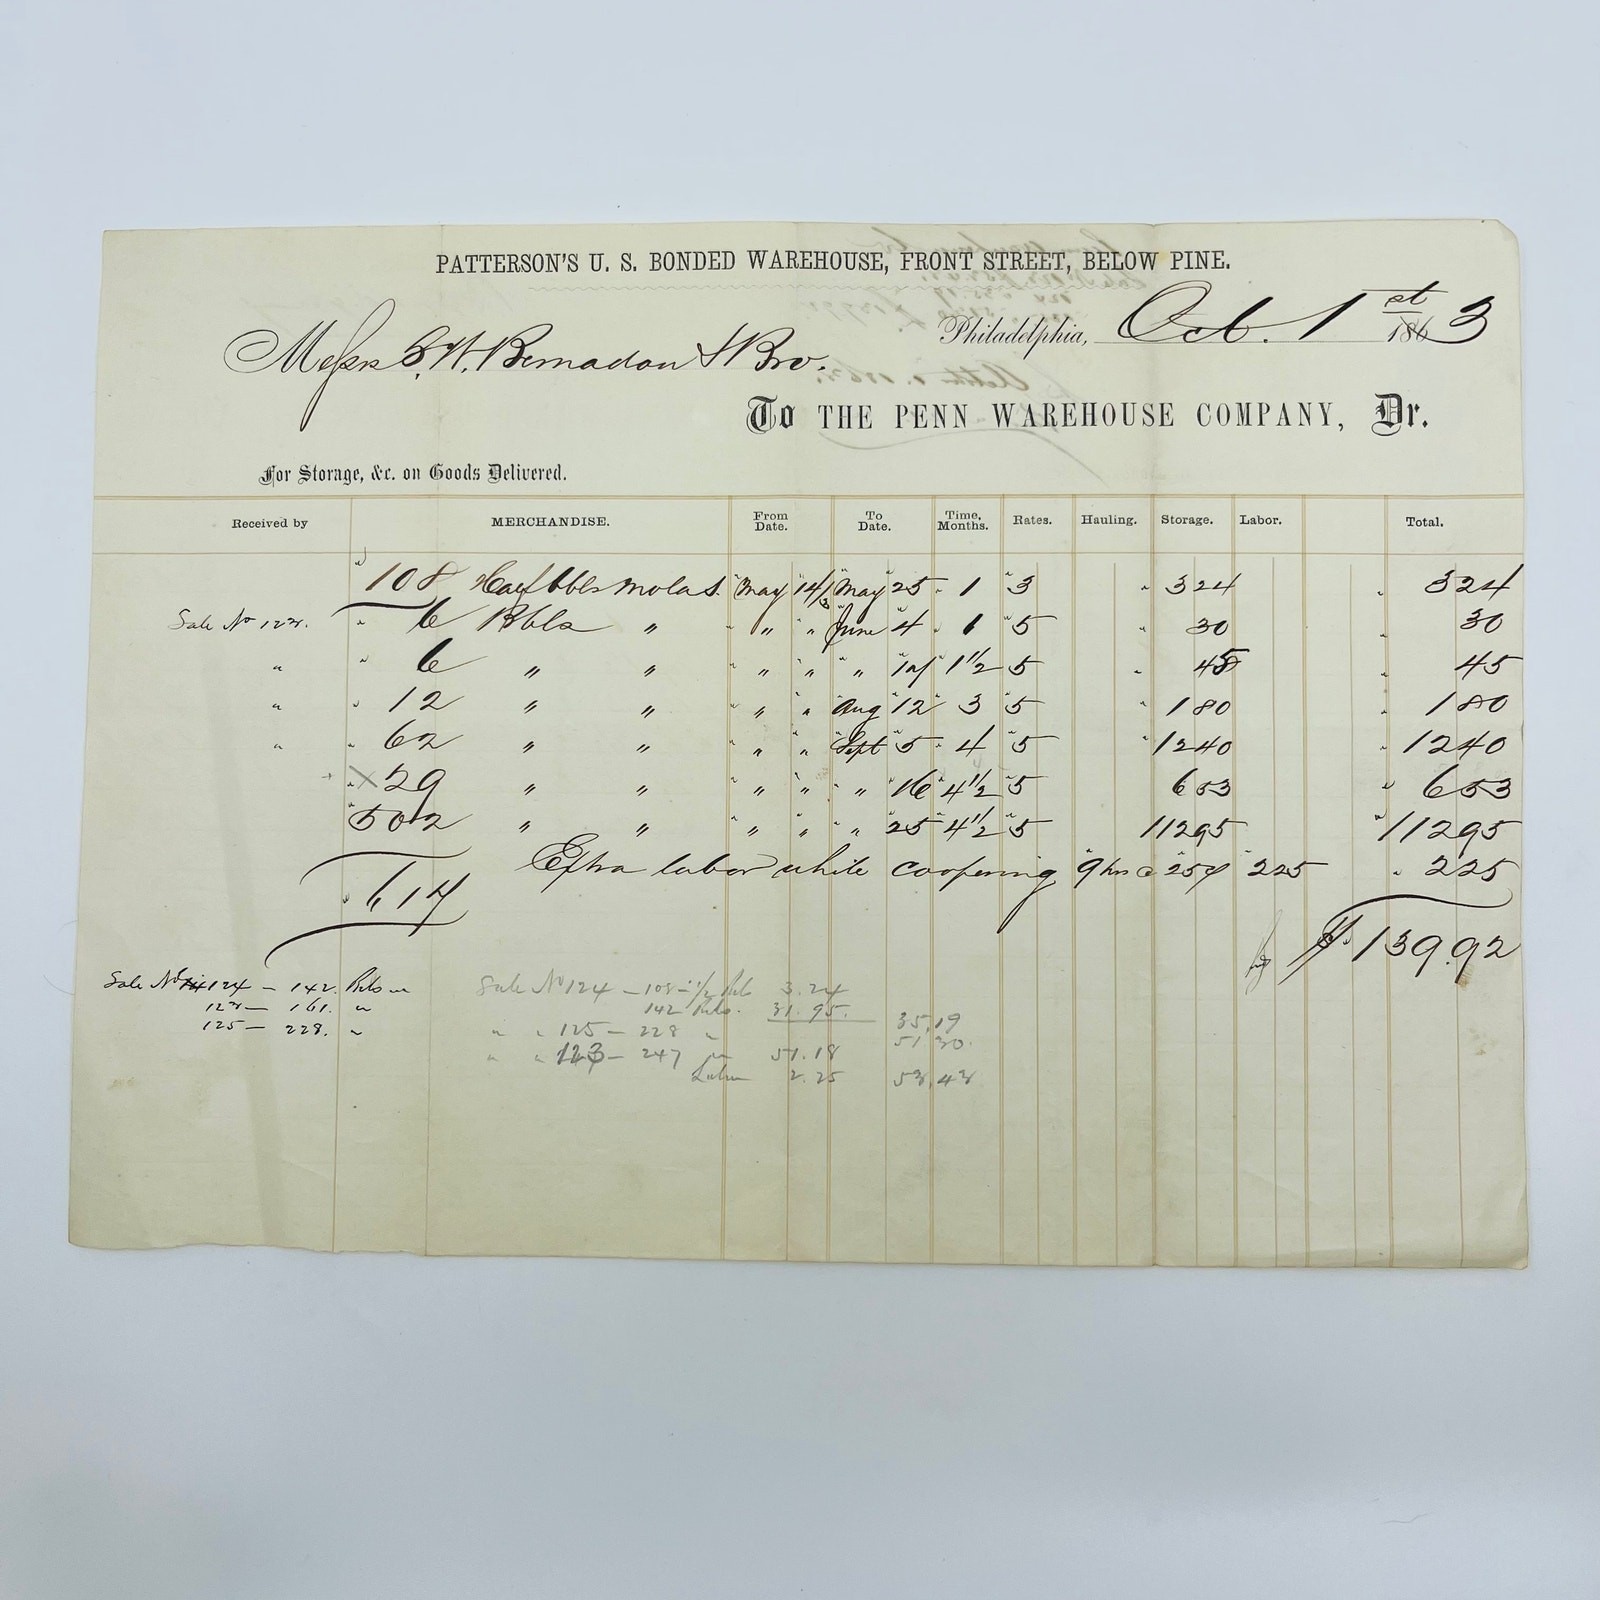 PATTERSON'S U. S. BONDED WAREHOUSE, FRONT STREET, BELOW PINE.
Philadelphia, Oct. 1st 1863
Messrs G. W. Bernadou & Bro.
To THE PENN WAREHOUSE COMPANY, Dr.
For Storage, &c. on Goods Delivered.
Received by MERCHANDISE. From Date. To Date. Time, Months. Rates. Hauling. Storage. Labor. Total.
" 108 Half bbls molas. " May 14/3 " May 25 " 1 " 3 " 324 " 324
Sale No 123. " 6 Bbls " " " " June 4 " 1 " 5 " 30 " 30
" " 6 " " " " " " 1 1/2 " 5 " 45 " 45
" " 12 " " " " " " Aug 12 " 3 " 5 " 180 " 180
" " 62 " " " " " Sept 5 " 4 " 5 " 1240 " 1240
" X 29 " " " " " " " " 16 " 4 1/2 " 5 653 " 653
" 502 " " " " " " " 25 " 4 1/2 " 5 11295 " 11295
Extra labor while coopering " 9 hrs @ " 25¢ " 225 " 225
" 617
$139.92
Sale No 124 — 142. Bbls
123 — 161. "
125 — 228. "
Sale No 124 — 108 — 1/2 Bbls 3.24
142 Bbls. 31.95. 35.19
" " 125 — 228 " 51 30.
" " 123 — 247 " 51.18
Labor 2.25 53.43